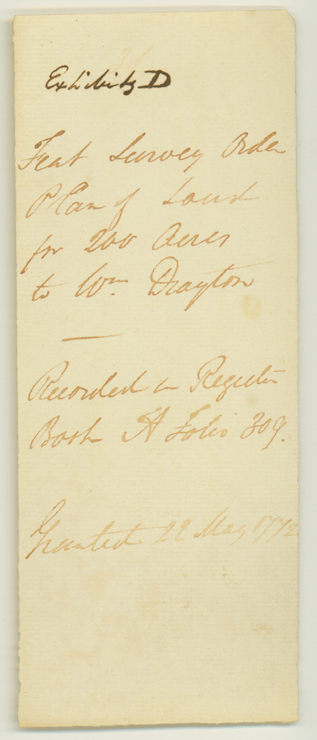 Exhibit D
Feat Survey Order
Plan of Land
for 200 Acres
to Wm Drayton
Recorded in Register
Book A Folio 309.
Granted 22 May 1772